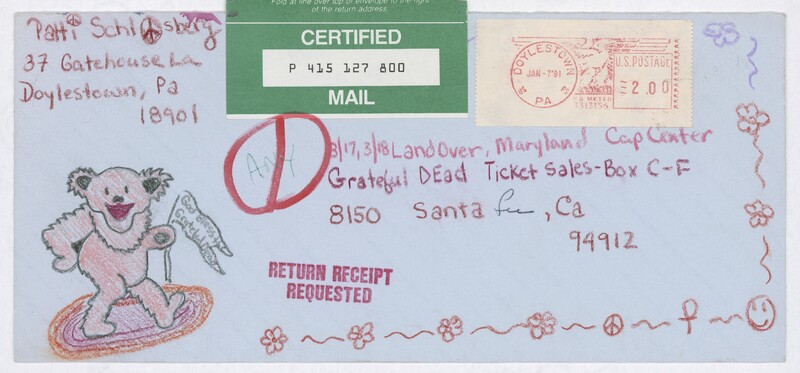 Fold at line over top of envelope to the right
of the return address.
CERTIFIED
P 415 127 800
MAIL
Patti Schlosberg
37 Gatehouse La
Doylestown, Pa
18901
DOYLESTOWN
JAN-7'91
PA
U.S. POSTAGE
2.00
PB METER
3/17, 3/18 LandOver, Maryland Cap Center
Grateful DEad Ticket Sales-Box C-F
8150 Santa Fee, Ca
94912
ANY
God Bless the
Grateful Dead
RETURN RECEIPT
REQUESTED